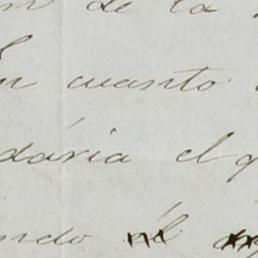 de la
En cuanto
daria el
ndo